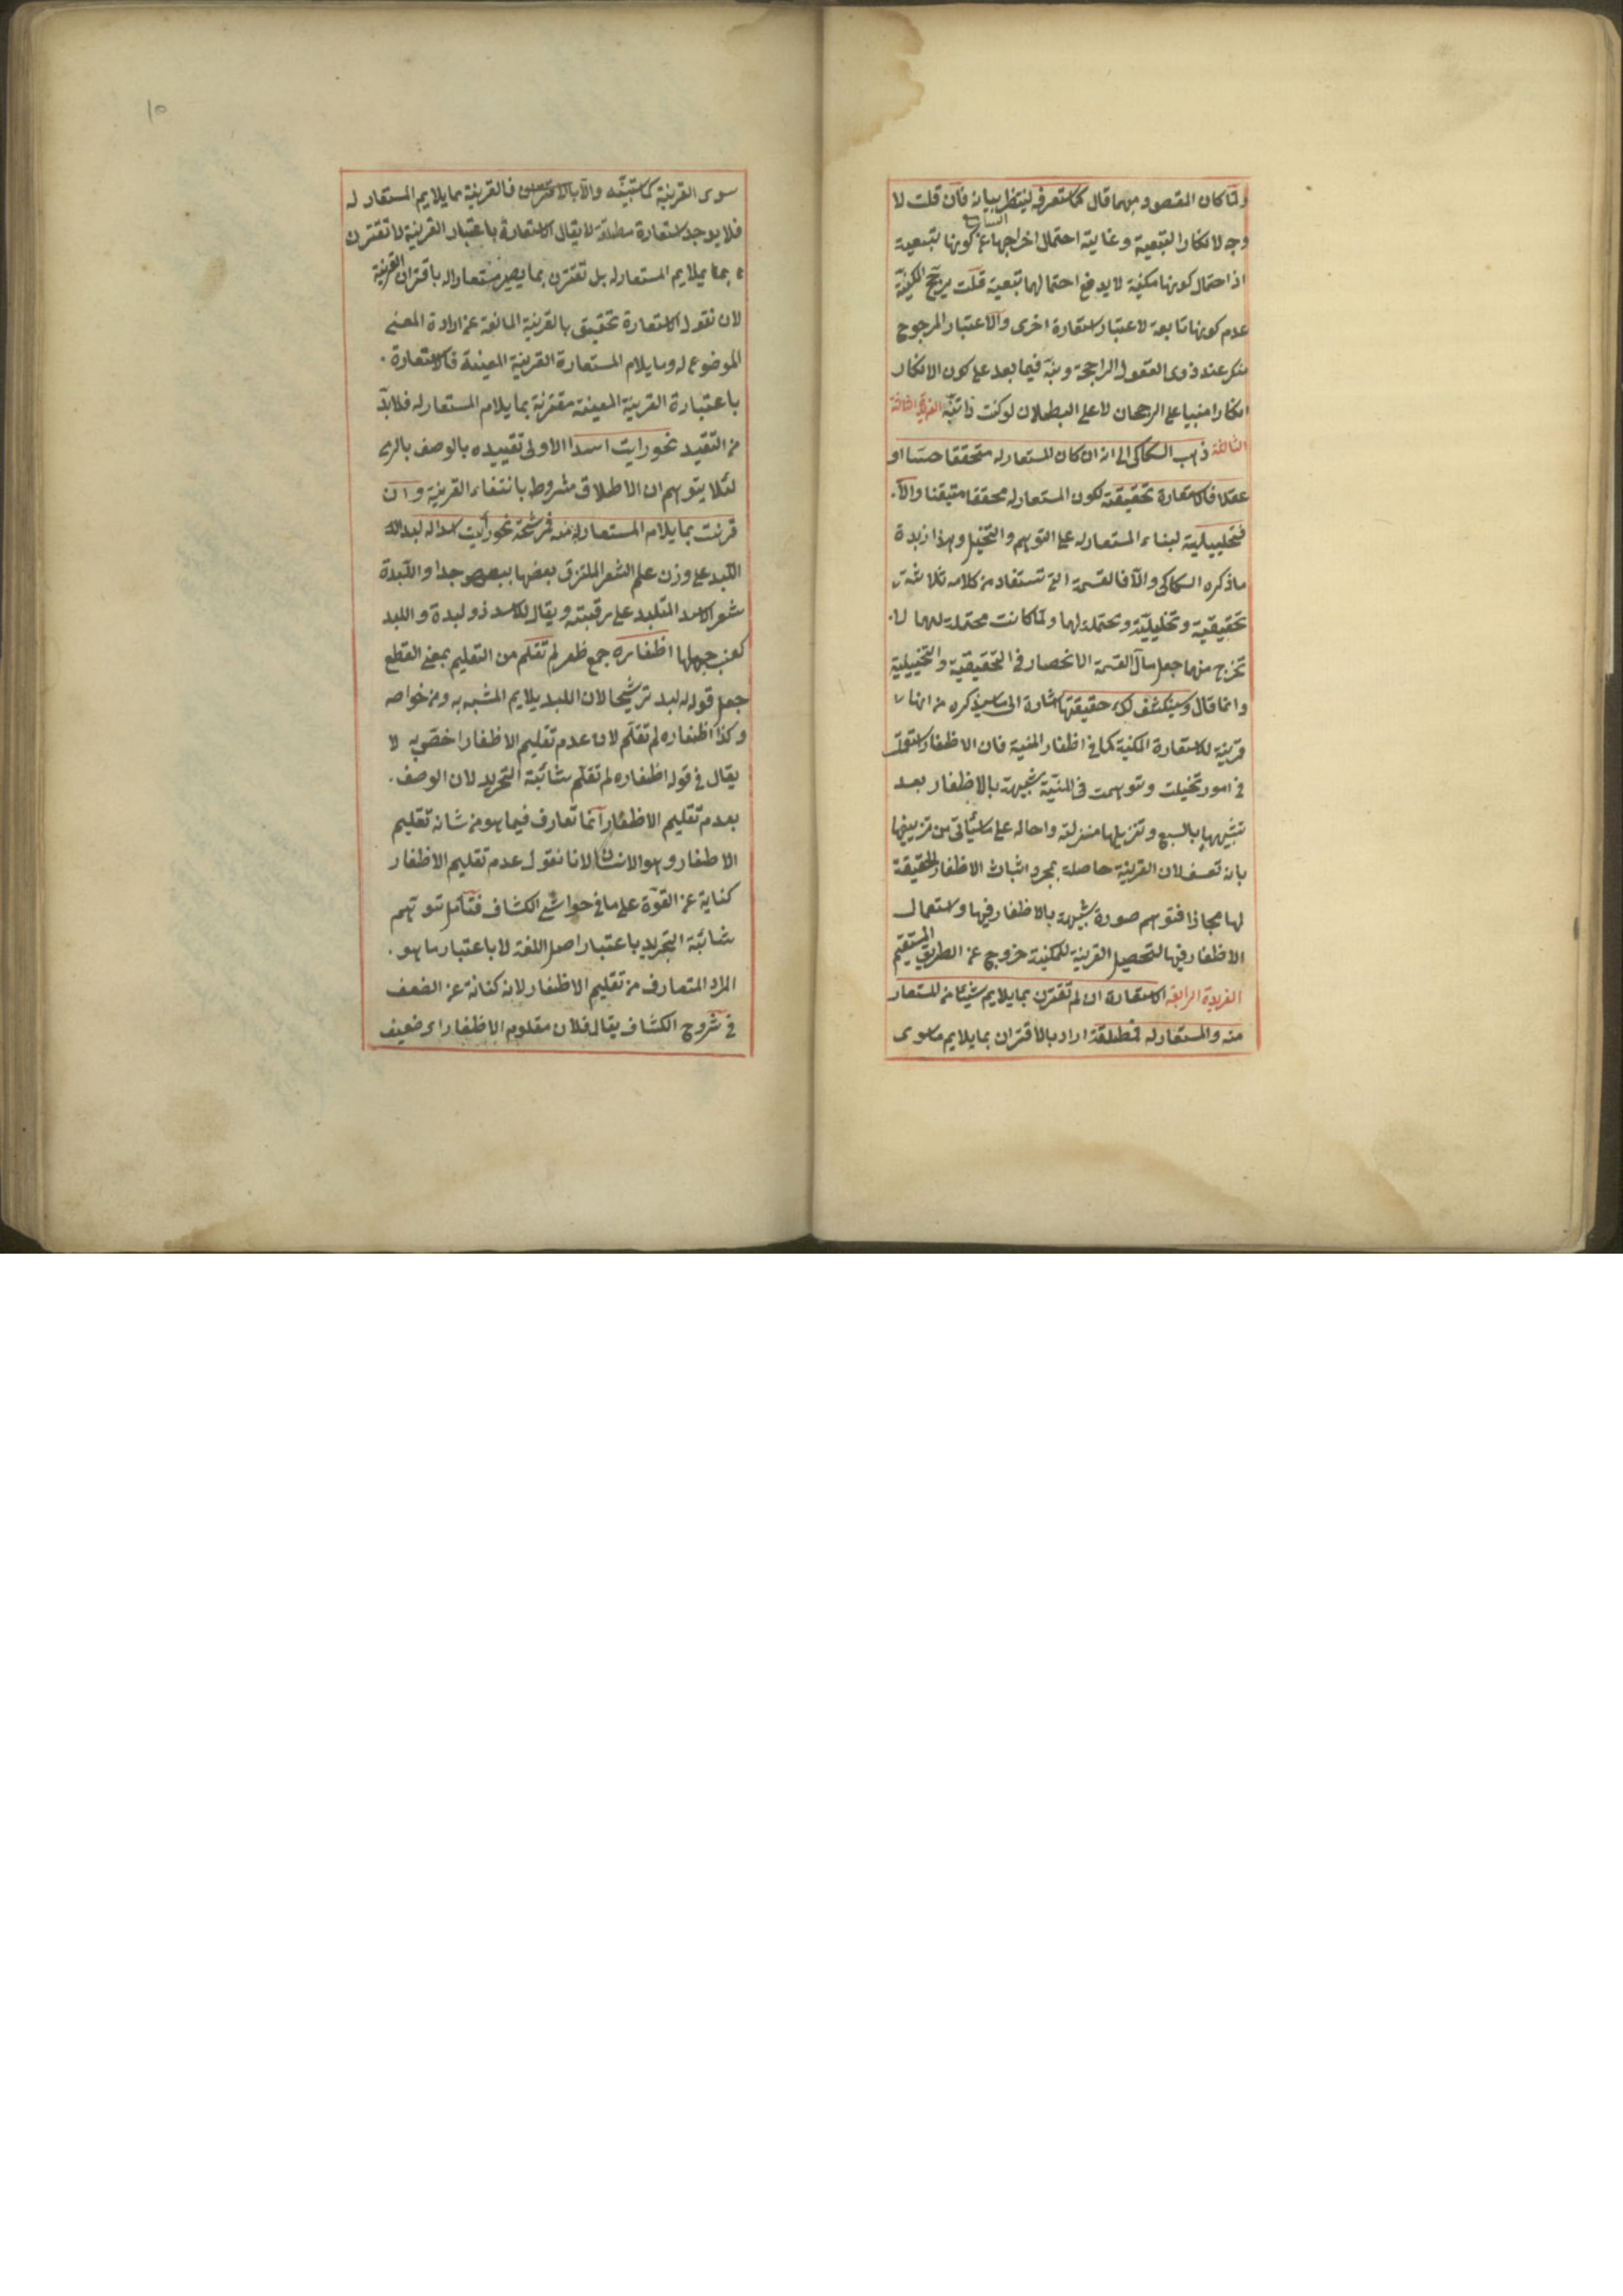 ولما كان المقصود مبهما قال كما ستعرفه لينتظر بيانه فان قلت لا
وجه لانكار التبعية وغايته احتمال اخراجها عن كونها تبعية
اذ احتمال كونها مكنية لا يدفع احتمالها تبعية قلت يرجح المكنية
عدم كونها تابعة لاعتبار استعارة اخرى والاعتبار المرجوح
منكر عند ذوى العقول الراجحة ونبّه فيما بعد على كون الانكار
انكارا مبنيا على الرجحان لا على البطلان لو كنت ذا تنبّه الفريدة الثالثة
الثالثة ذهب السكاكى الى انه ان كان المستعار له متحققا حسّا او
عقلا فالاستعارة تحقيقية لكون المستعار له محققا متيقنا والّا
فتخييلية لبناء المستعار له على التوهم والتخيل وهذا زبدة
ما ذكره السكاكى والّا فالقسمة التى تستفاد من كلامه ثلاثة
تحقيقية وتخليليّة ومحتملة لهما ولما كانت محتملة لهما لا
تخرج منهما جعل مآل القسمة الانحصار فى التحقيقية والتخييلية
وانما قال وسينكشف لك حقيقتها اشارة الى ما سيذكره من انها
قرينة للاستعارة المكنية كما فى اظفار المنية فان الاظفار استعملت
فى امور تخيلت وتوهمت فى المنيّة شبيهة بالاظفار بعد
تشبيهها بالسبع وتنزيلها منزلته واحاله على ما سيأتى من تزييفها
بانه تعسف لان القرينة حاصلة بمجرد اثبات الاظفار الحقيقة
لها مجازا فتوهم صورة شبيهة بالاظفار فيها واستعمال
الاظفار فيها لتحصيل القرينة للمكنية خروج عن الطريق المستقيم
الفريدة الرابعة الاستعارة ان لم تقترن بما يلايم شيئا من المستعار
منه والمستعار له فمطلقة اراد بالاقتران بما يلايم ما سوى
سوى القرينة كما ستبيّنه والّا فالقرينة مما يلايم المستعار له
فلا يوجد استعارة مطلقة لا يقال الاستعارة باعتبار القرينة لا تقترن
بما يلايم المستعار له بل تقترن بما يصير مستعارا له باقتران القرينة
لان نقول الاستعارة تحقيق بالقرينة المانعة عن ارادة المعنى
الموضوع له وما يلام المستعارة القرينة المعينة فالاستعارة
باعتبارة القرينة المعينة مقترنة بما يلام المستعار له فلا بدّ
من التقيد نحو رايت اسدا الاولى تقييده بالوصف بالرمى
لئلا يتوهم ان الاطلاق مشروط بانتفاء القرينة وان
قرنت بما يلام المستعار له منه فمرشحة نحو رأيت اسدا له لبد
اللبد على وزن علم الشعر الملتزق بعضها ببعض جدا واللبدة
شعر الاسد المتلبد على رقبته ويقال للاسد ذو لبدة واللبد
كعنب جمعها اظفاره جمع ظفر لم تقلم من التقليم بمعنى القطع
جعل قوله له لبد ترشيحا لان اللبد يلايم المشبه به ومن خواصه
وكذا اظفاره لم تقلم لان عدم تقليم الاظفار اخص به لا
يقال فى قوله اظفاره لم تقلّم شائبة التجريد لان الوصف
بعدم تقليم الاظفار انما تعارف فيما هو من شانه تقليم
الاظفار وهو الانسان لانا نقول عدم تقليم الاظفار
كناية عن القوّة على ما فى حواشى الكشاف فتأمل تتوهم
شائبة التجريد باعتبار اصل اللغة لا باعتبار ما هو
المراد المتعارف من تقليم الاظفار لانه كناية عن الضعف
فى شروح الكشاف يقال فلان مقلوم الاظفار اى ضعيف